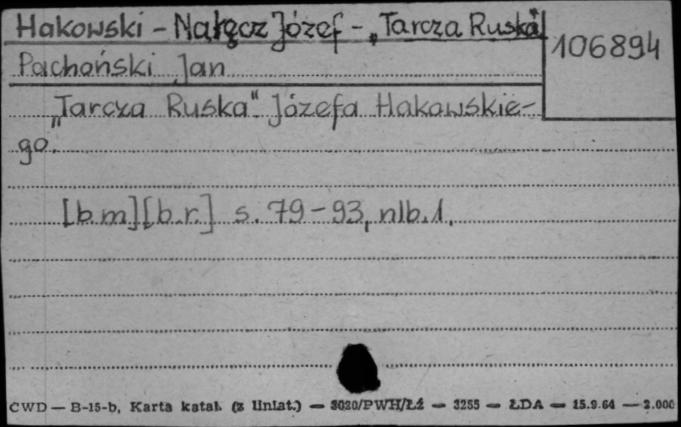 Hakowski - Nałęcz Józef - „Tarcza Ruska"
106894
Pachoński Jan
„Tarcza Ruska". Józefa Hakowskie-
go.
[b.m][b.r.] s. 79-93, nlb.1.
CWD — B-15-b, Karta katal. (z liniat.) — 3020/PWH/Łź — 3255 — ŁDA — 15.9.64 — 2.000